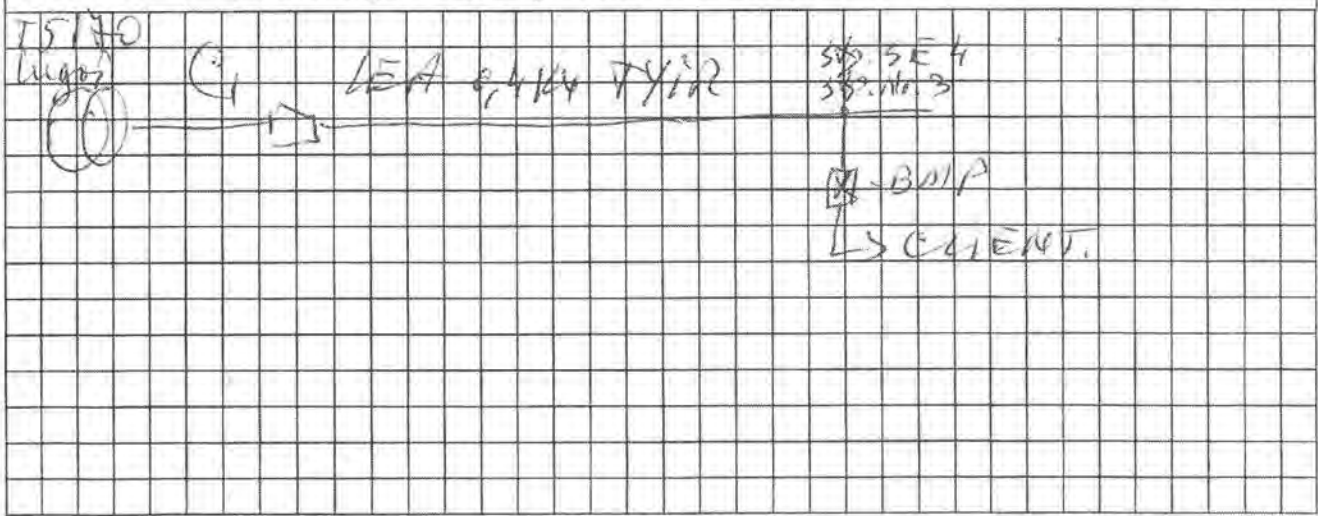 T5170
Lugoj
C1 LEA 0,4KV TYIR
stp. SE 4
stp. Nr. 3
-BMP
CLIENT.